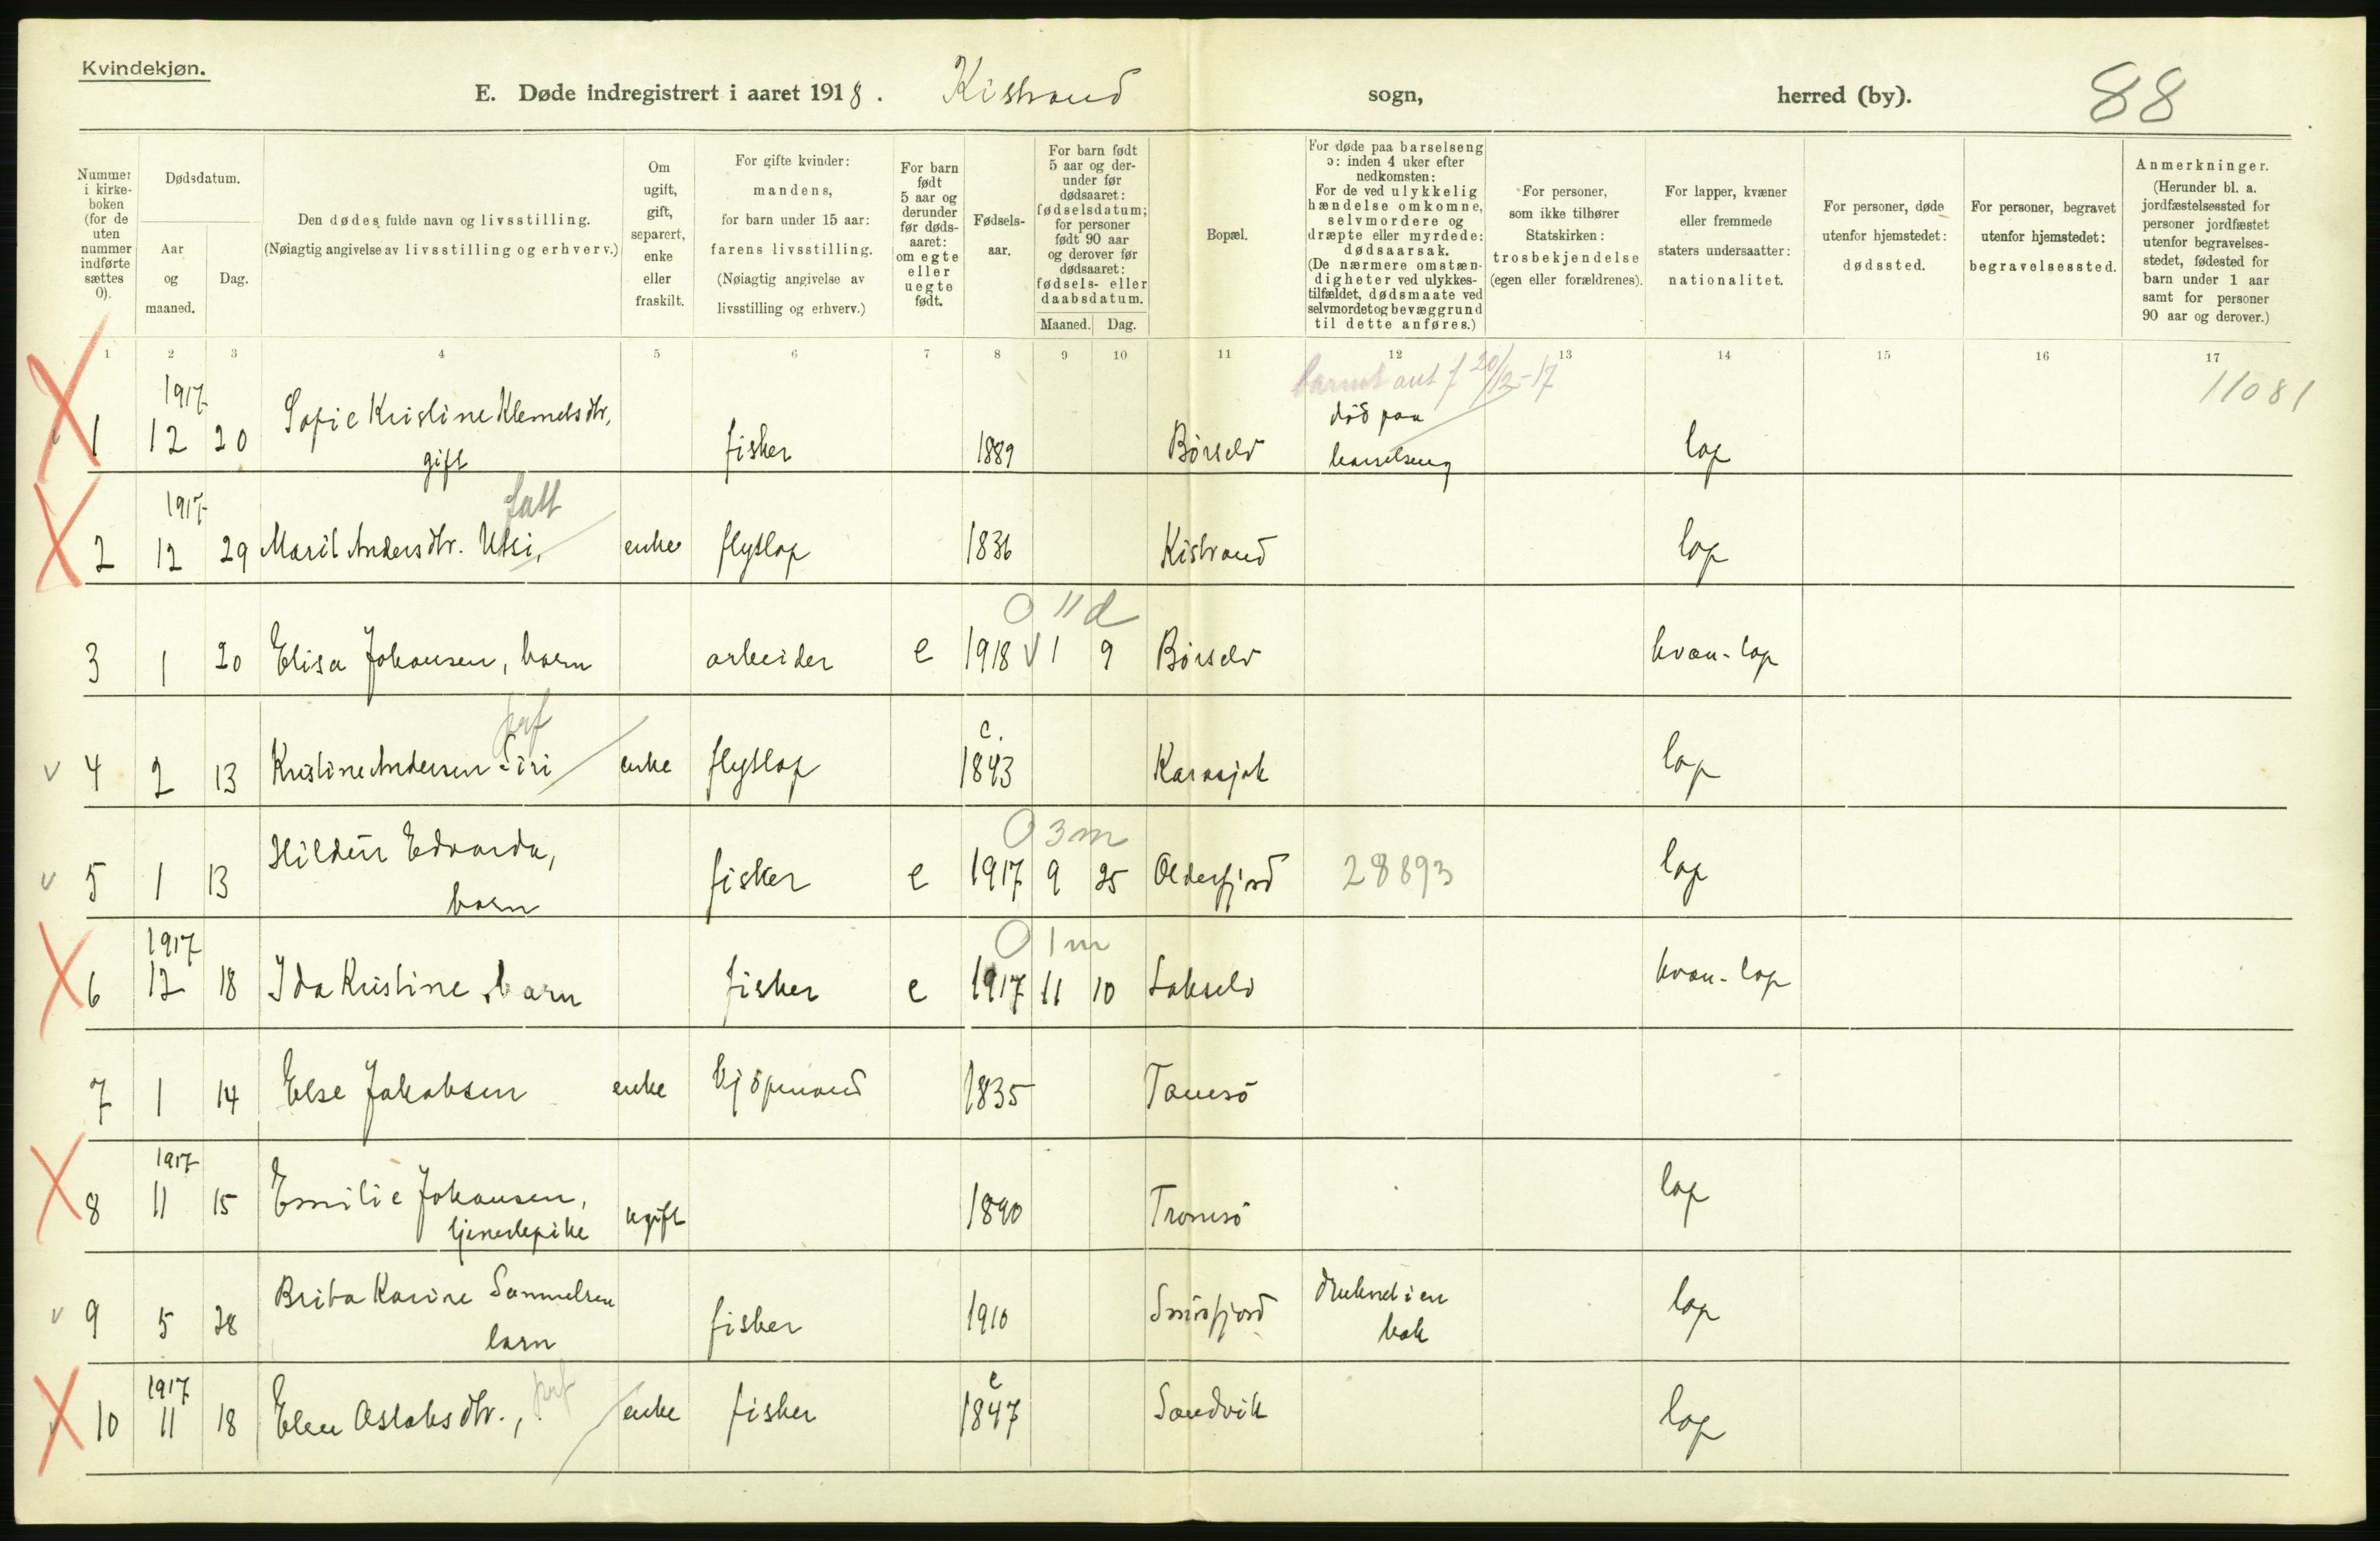 Kvindekjøn.
E. Døde indregistrert i aaret 1918. Kistrand sogn, herred (by). 88
Nummer i kirkeboken (for de uten nummer indførte sættes 0).
Dødsdatum.
Aar og maaned.
Dag.
Den dødes fulde navn og livsstilling.
(Nøiagtig angivelse av livsstilling og erhverv.)
Om ugift, gift, separert, enke eller fraskilt.
For gifte kvinder: mandens, for barn under 15 aar: farens livsstilling. (Nøiagtig angivelse av livsstilling og erhverv.)
For barn født 5 aar og derunder før dødsaaret: om egte eller uegte født.
Fødselsaar.
For barn født 5 aar og derunder før dødsaaret: fødselsdatum; for personer født 90 aar og derover før dødsaaret: fødsels- eller daabsdatum.
Maaned. Dag.
Bopæl.
For døde paa barselseng ɔ: inden 4 uker efter nedkomsten: For de ved ulykkelig hændelse omkomne, selvmordere og dræpte eller myrdede: dødsaarsak. (De nærmere omstændigheter ved ulykkestilfældet, dødsmaate ved selvmordet og bevæggrund til dette anføres.)
For personer, som ikke tilhører Statskirken: trosbekjendelse (egen eller forældrenes).
For lapper, kvæner eller fremmede staters undersaatter: nationalitet.
For personer, døde utenfor hjemstedet: dødssted.
For personer, begravet utenfor hjemstedet: begravelsessted.
Anmerkninger. (Herunder bl. a. jordfæstelsessted for personer jordfæstet utenfor begravelsesstedet, fødested for barn under 1 aar samt for personer 90 aar og derover.)
1 2 3 4 5 6 7 8 9 10 11 12 13 14 15 16 17
1917 barnet f 20/12-17 11081
1 12 20 Sofie Kristine Klemetsdtr, gift fisker 1889 Børselv død paa barselseng lap
1917 fatt
2 12 29 Marit Andersdtr. Utsi, enke flytlap 1836 Kistrand lap
0 11 d
3 1 20 Elisa Johansen, barn arbeider e 1918 1 9 Børselv kvæn-lap
c.
4 2 13 Kristine Andersen enke flytlap 1843 Karasjok lap
0 3 m
5 1 13 Edvarda, barn fisker e 1917 9 25 Olderfjord 28893 lap
1917 0 1 m
6 12 18 Ida Kristine, barn fisker e 1917 11 10 Lakselv kvæn-lap
7 1 14 Else Jakobsen enke kjøpmand 1835 Tamsø
1917
8 11 15 Emilie Johansen, tjenestepike ugift 1890 Tromsø lap
9 5 28 Brita Karine Sammelsen barn fisker 1910 Smørfjord druknet i en bæk lap
1917 c
10 11 18 Elen Aslaksdtr., enke fisker 1847 Sandvik lap